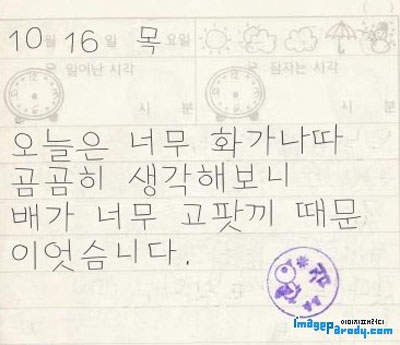 10월 16일 목요일
일어난 시각 잠자는 시각
시 분 시 분
오늘은 너무 화가나따
곰곰히 생각해보니
배가 너무 고팟끼 때문
이엇슴니다.
이미지패러디
imageparody.com